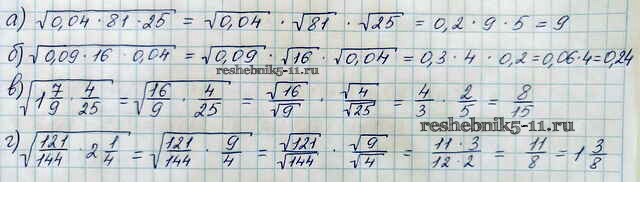 а) √(0,04 · 81 · 25) = √0,04 · √81 · √25 = 0,2 · 9 · 5 = 9
б) √(0,09 · 16 · 0,04) = √0,09 · √16 · √0,04 = 0,3 · 4 · 0,2 = 0,06 · 4 = 0,24
reshebnik5-11.ru
в) √(1 7/9 · 4/25) = √(16/9 · 4/25) = √16/√9 · √4/√25 = 4/3 · 2/5 = 8/15
reshebnik5-11.ru
г) √(121/144 · 2 1/4) = √(121/144 · 9/4) = √121/√144 · √9/√4 = 11 · 3/12 · 2 = 11/8 = 1 3/8